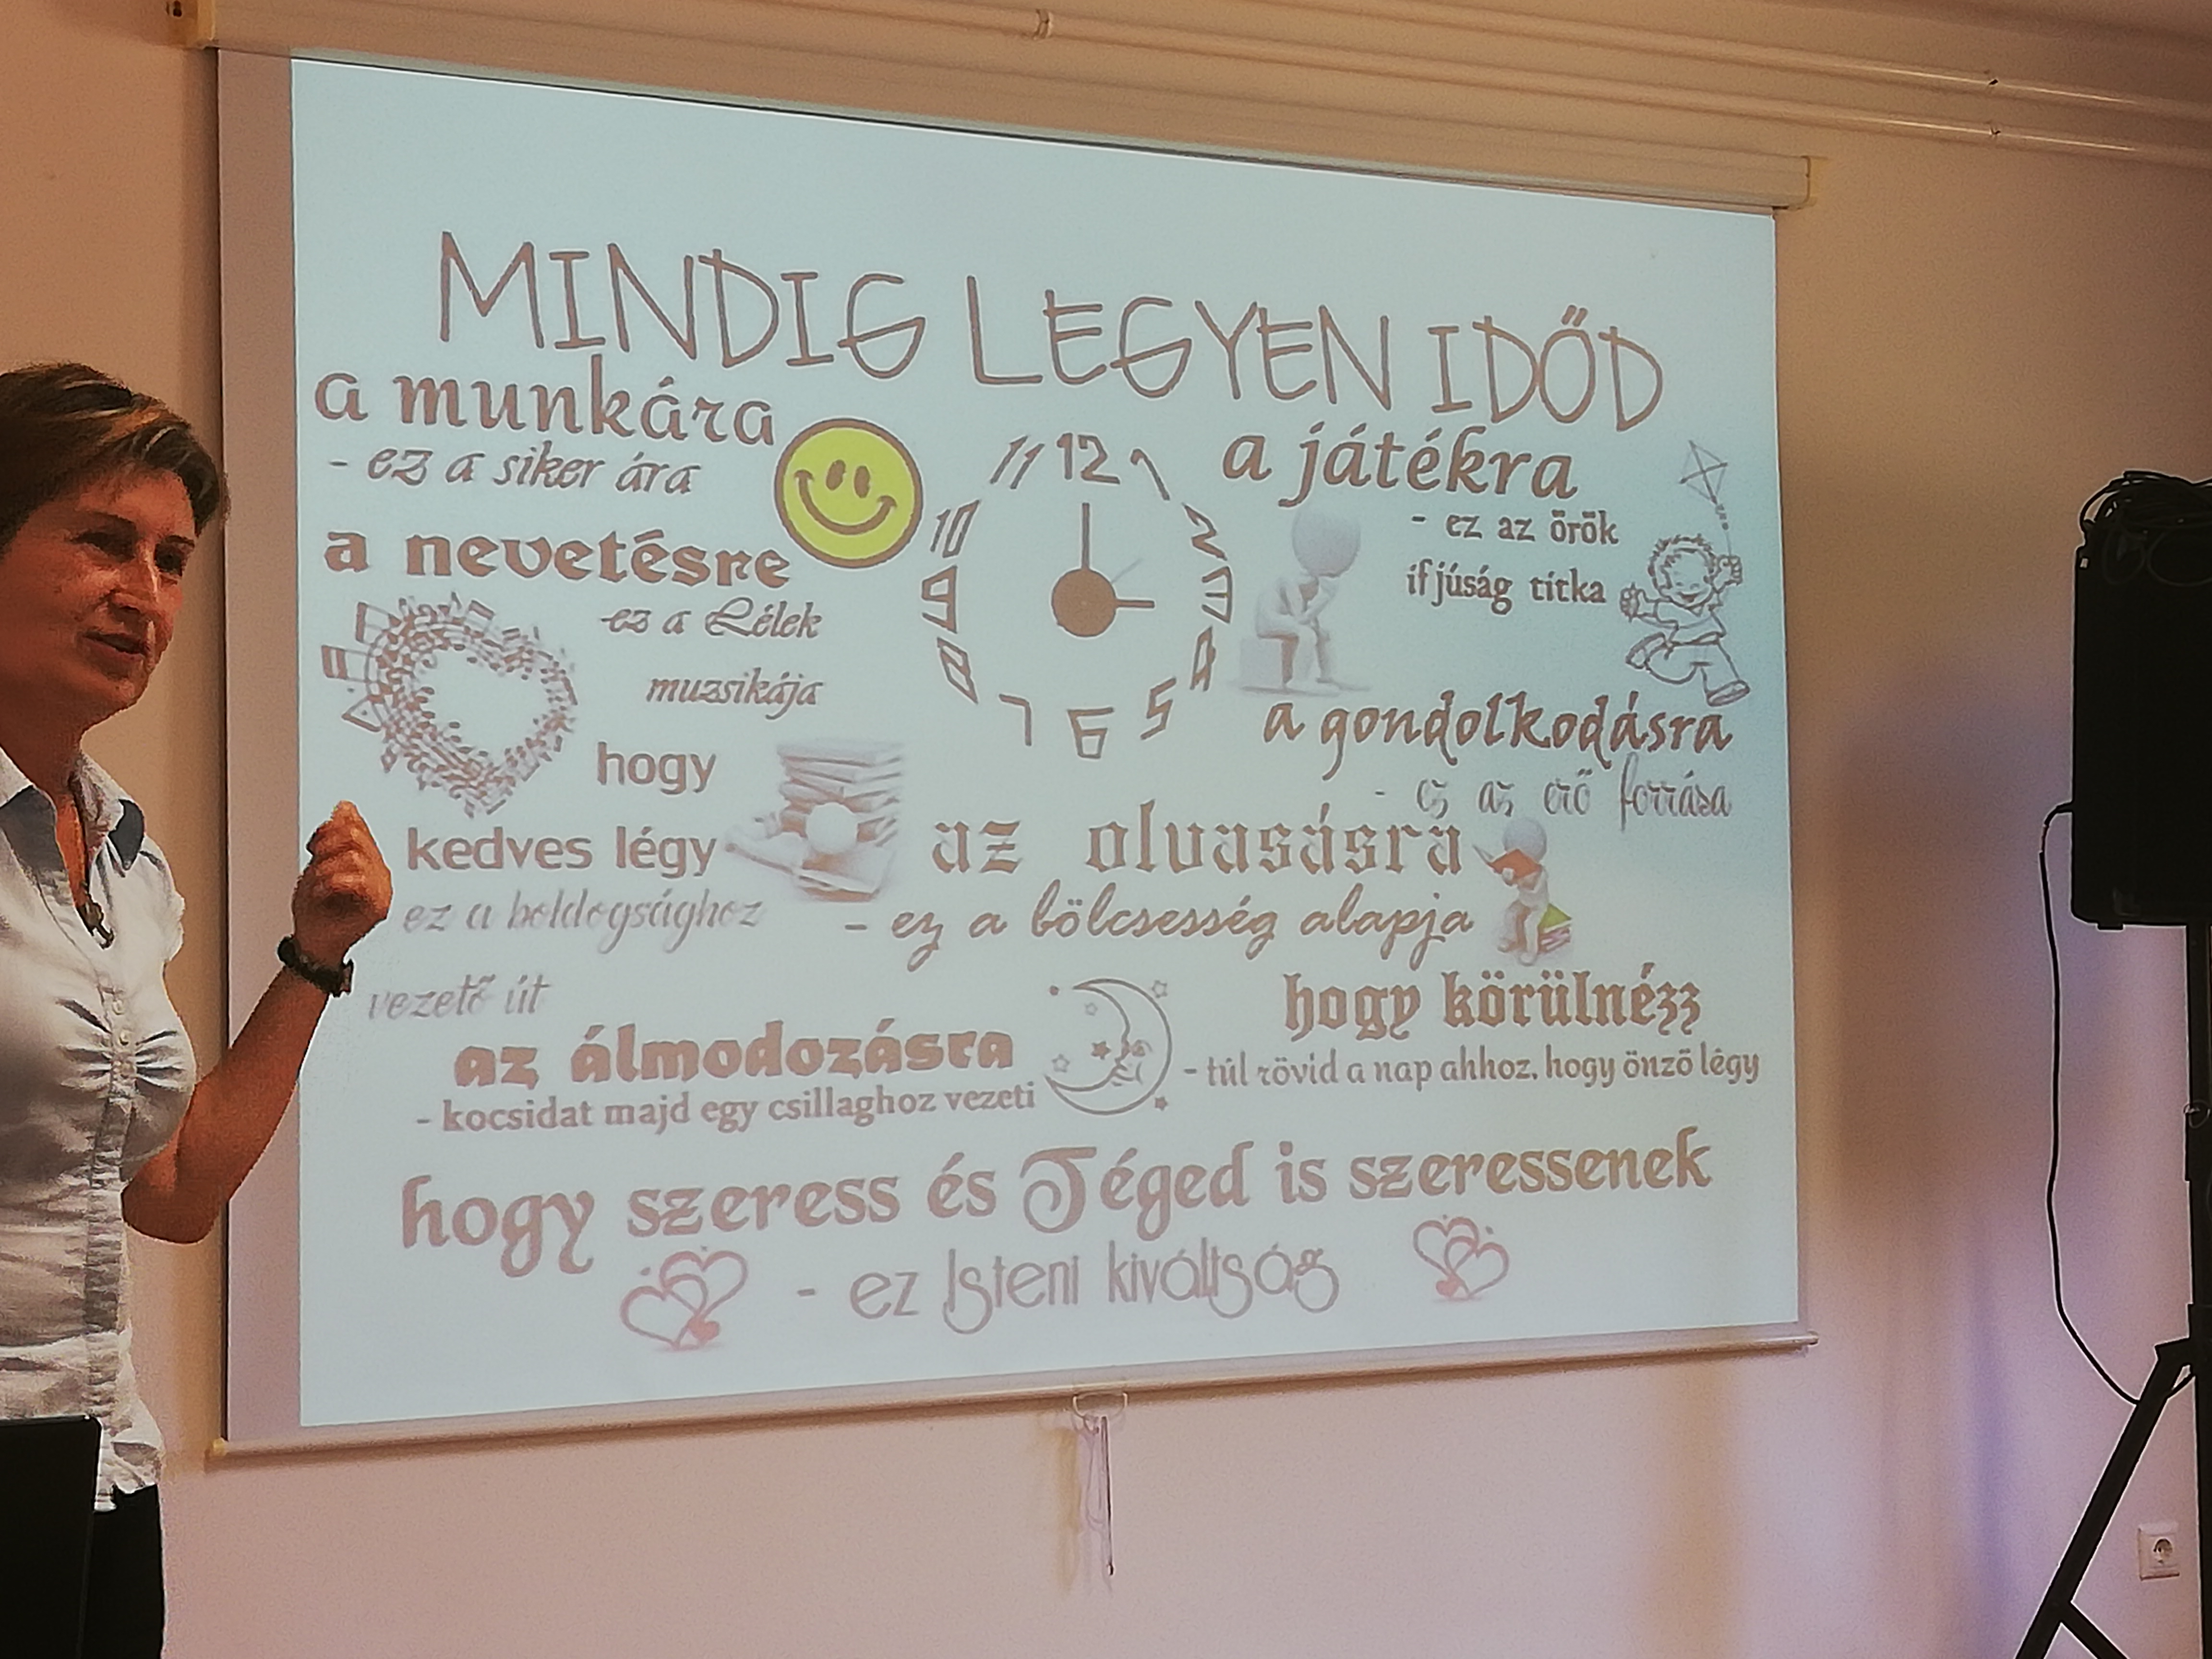 MINDIG LEGYEN IDŐD
a munkára
- ez a siker ára
a nevetésre
- ez a Lélek
muzsikája
hogy
kedves légy
ez a boldogsághoz
vezető út
11 12 1
10 2
9 3
8 4
7 6 5
a játékra
- ez az örök
ifjúság titka
a gondolkodásra
- ez az erő forrása
az olvasásra
- ez a bölcsesség alapja
az álmodozásra
- kocsidat majd egy csillaghoz vezeti
hogy körülnézz
- túl rövid a nap ahhoz, hogy önző légy
hogy szeress és Téged is szeressenek
- ez Isteni kiváltság